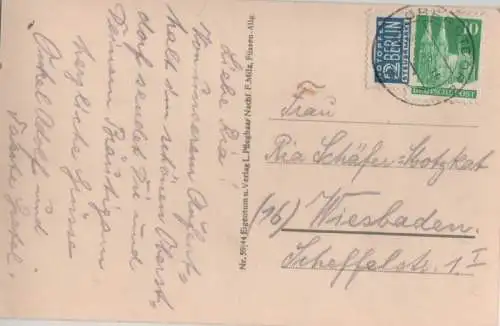 Liebe Ria!
Von unserem Aufent-
halt im schönen Oberst-
dorf sendet Dir und
Deinem Bräutigam
herzliche Grüsse
Onkel Adolf und
Tante Gretel.
Nr. 59/44 Eigentum u. Verlag L. Pfleghaar Nachf. F. Milz, Füssen-Allg.
NOTOPFER
2 BERLIN
STEUERMARKE
10
DEUTSCHE POST
Frau
Ria Schäfer-Motzkat
(16) Wiesbaden.
Scheffelstr. 1 I